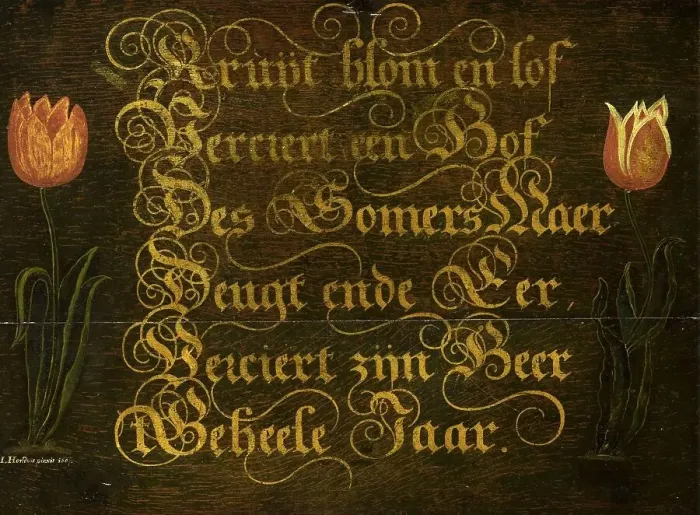 Kruijt blom en lof
Verciert een Hof,
Des Somers Maer
Deugt ende Eer,
Verciert zijn Heer
tGeheele Jaar.
pinxit